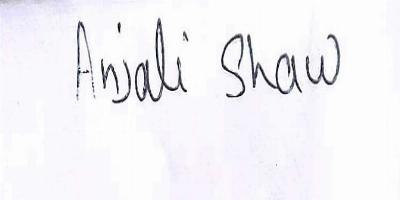 Anjali Shaw